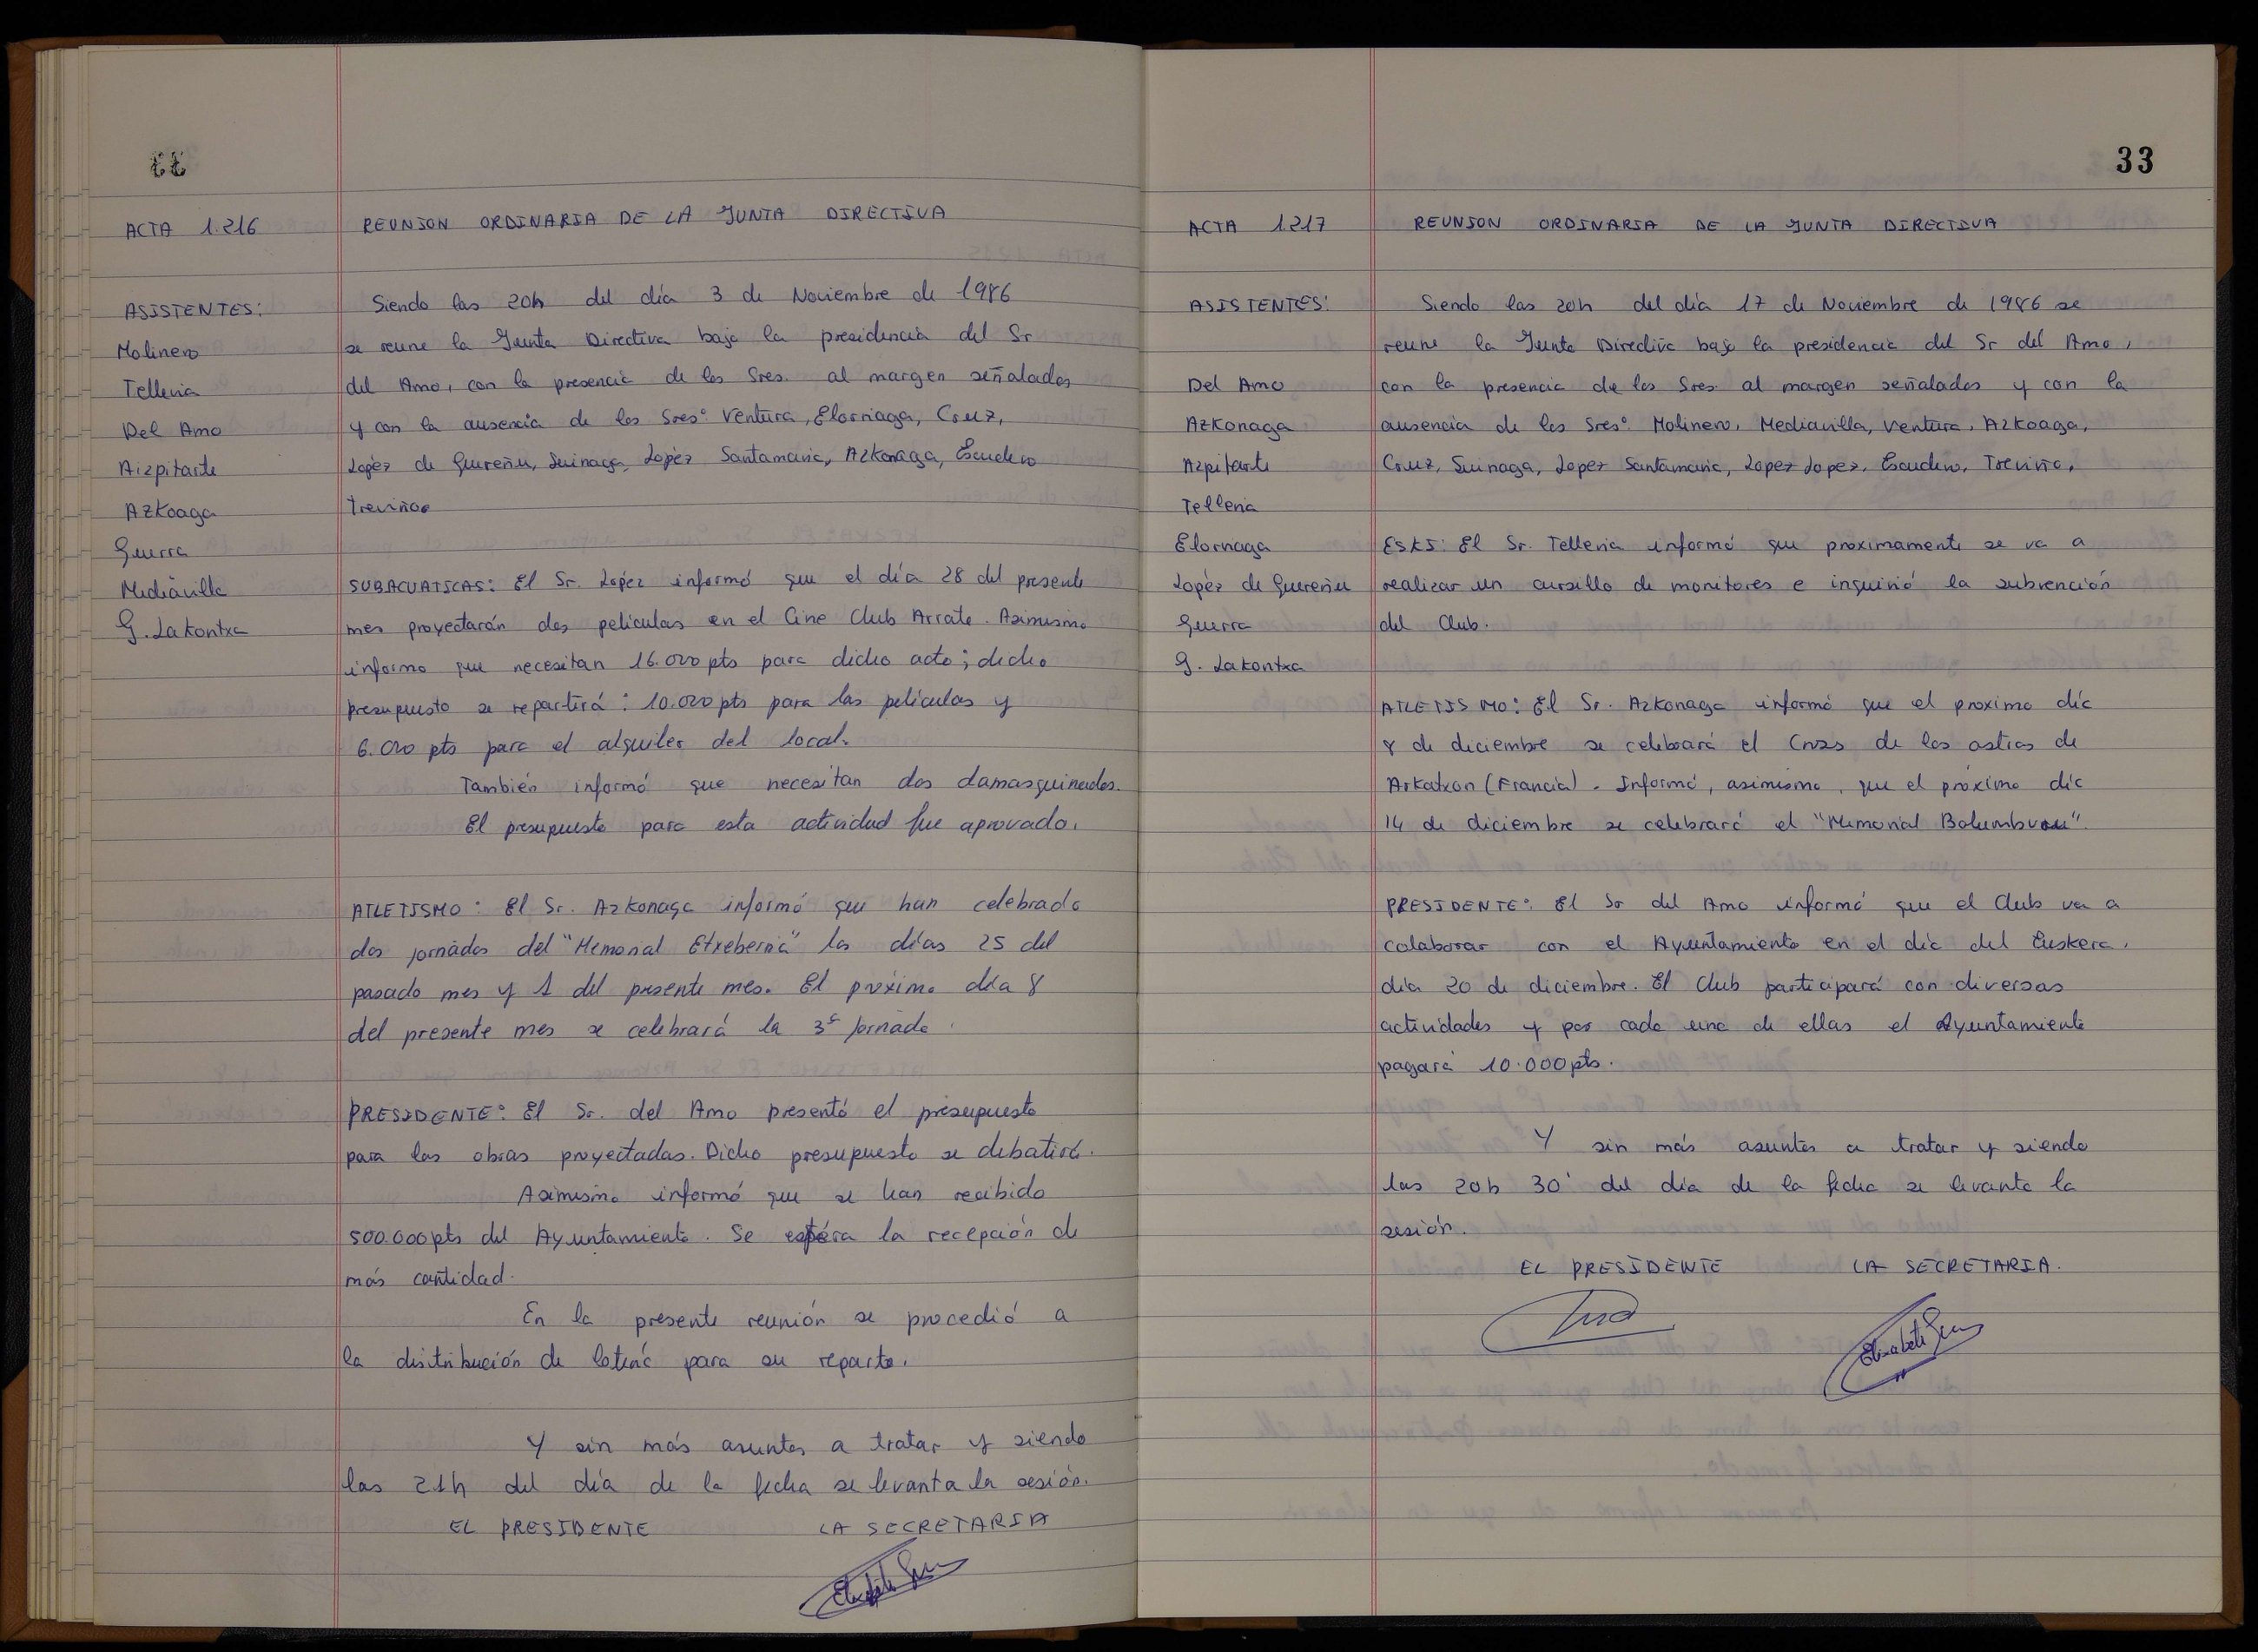 ACTA 1.216
REUNION ORDINARIA DE LA JUNTA DIRECTIVA
ASISTENTES:
Molinero
Telleria
Del Amo
Aizpitarte
Azkoaga
Guerra
Mediavilla
G. Lakontxa
Siendo las 20h del día 3 de Noviembre de 1986
se reune la Junta Directiva bajo la presidencia del Sr
del Amo, con la presencia de los Sres. al margen señalados
y con la ausencia de los Sres: Ventura, Elorriaga, Cruz,
Lopèz de Guereñu, Suinaga, Lopèz Santamaria, Azkonaga, Escudero
Treviño.
SUBACUATICAS: El Sr. Lopèz informó que el día 28 del presente
mes proyectarán dos peliculas en el Cine Club Arrate. Asimismo
informo que necesitan 16.000 pts para dicho acto; dicho
presupuesto se repartirá: 10.000 pts para las películas y
6.000 pts para el alquiler del local.
También informó que necesitan dos damasquinados.
El presupuesto para esta actividad fue aprovado.
ATLETISMO: El Sr. Azkonaga informó que han celebrado
dos jornadas del "Memorial Etxeberria" los días 25 del
pasado mes y 1 del presente mes. El próximo día 8
del presente mes se celebrará la 3ª jornada.
PRESIDENTE: El Sr. del Amo presentó el presupuesto
para las obras proyectadas. Dicho presupuesto se debatirá.
Asimismo informó que se han recibido
500.000 pts del Ayuntamiento. Se espéra la recepción de
más cantidad.
En la presente reunión se procedió a
la distribución de lotería para su reparto.
Y sin más asuntos a tratar y siendo
las 21h del día de la fecha se levanta la sesión.
EL PRESIDENTE LA SECRETARIA
33
ACTA 1217
REUNION ORDINARIA DE LA JUNTA DIRECTIVA
ASISTENTES:
Del Amo
Azkonaga
Azpitarte
Telleria
Elornaga
Lopèz de Guereñu
Guerra
G. Lakontxa
Siendo las 20h del día 17 de Noviembre de 1986 se
reune la Junta Directiva bajo la presidencia del Sr del Amo,
con la presencia de los Sres. al margen señalados y con la
ausencia de los Sres: Molinero, Mediavilla, Ventura, Azkoaga,
Cruz, Suinaga, Lopez Santamaria, Lopez Lopez, Escudero, Treviño,
ESKI: El Sr. Telleria informó que proximamente se va a
realizar un cursillo de monitores e inquirió la subvención
del Club.
ATLETISMO: El Sr. Azkonaga informó que el proximo día
8 de diciembre se celebrará el Cross de las ostras de
Arkatxon (Francia). Informó, asimismo, que el próximo día
14 de diciembre se celebrará el "Memorial Bolumburu".
PRESIDENTE: El Sr del Amo informó que el Club va a
colaborar con el Ayuntamiento en el día del Euskera,
día 20 de diciembre. El Club participará con diversas
actividades y por cada una de ellas el Ayuntamiento
pagará 10.000 pts.
Y sin más asuntos a tratar y siendo
las 20h 30' del día de la fecha se levanta la
sesión.
EL PRESIDENTE LA SECRETARIA.